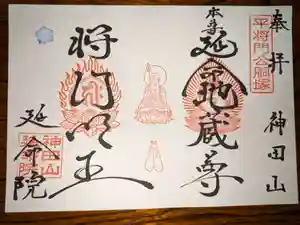 奉拝 神田山
平将門公胴塚
本尊延命地蔵尊
将門明王
延命院
神田山
延命院